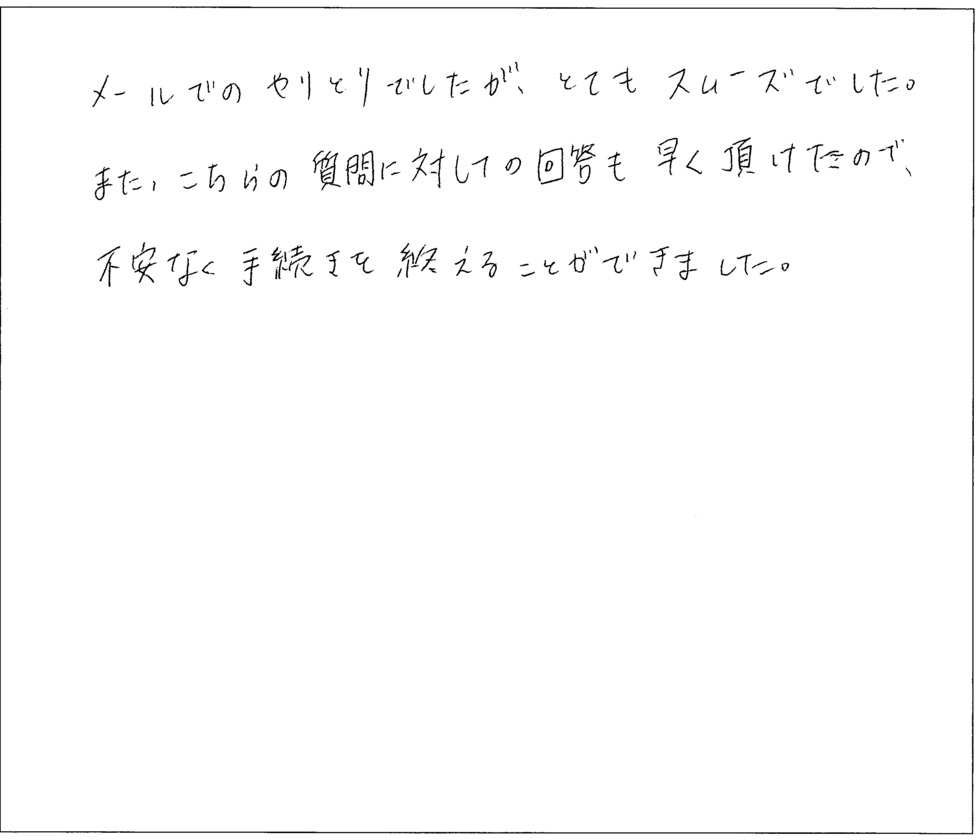 メールでのやりとりでしたが、とてもスムーズでした。
また、こちらの質問に対しての回答も早く頂けたので、
不安なく手続きを終えることができました。